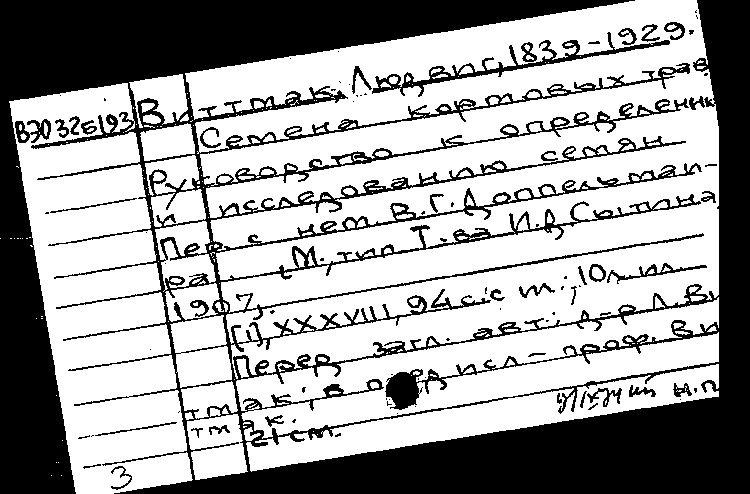 ВЭ0325193 Виттмак, Людвиг, 1839-1929.
Семена кормовых трав
Руководство к определению
и исследованию семян
Пер. с нем. В.Г. Доппельмай-
ра. М., тип Т.ва И.Д. Сытина,
1907.
[1], XXXVIII, 94 с. с т.; 10 л. ил.
Перед загл. авт.: Д-р Л. Ви
тмак; в предисл - проф. Ви
тмак.
21 см.
Н.П
3